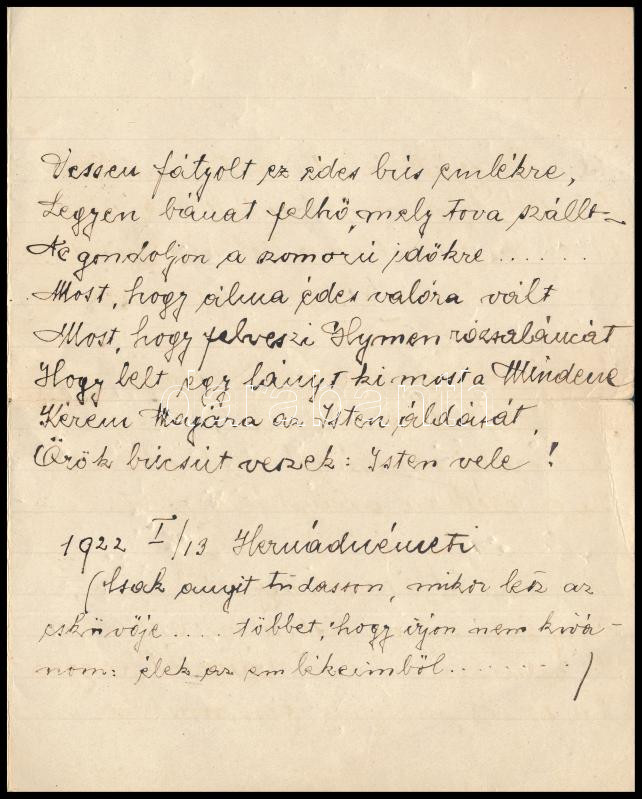 Vessen fátyolt ez édes bús emlékre,
Legyen bánat felhő, mely tova szállt –
Ne gondoljon a szomorú időkre ......
Most, hogy álma édes valóra vált
Most, hogy felveszi Hymen rózsaláncát
Hogy lelt egy lányt ki most a Mindene
Kérem Magára az Isten áldását,
Örök búcsút veszek: Isten vele!
1922 I/13 Hernádnémeti
(Csak annyit tudasson, mikor lesz az
esküvője .... többet, hogy írjon nem kívá-
nom: élek az emlékeimből ........)
darabanth